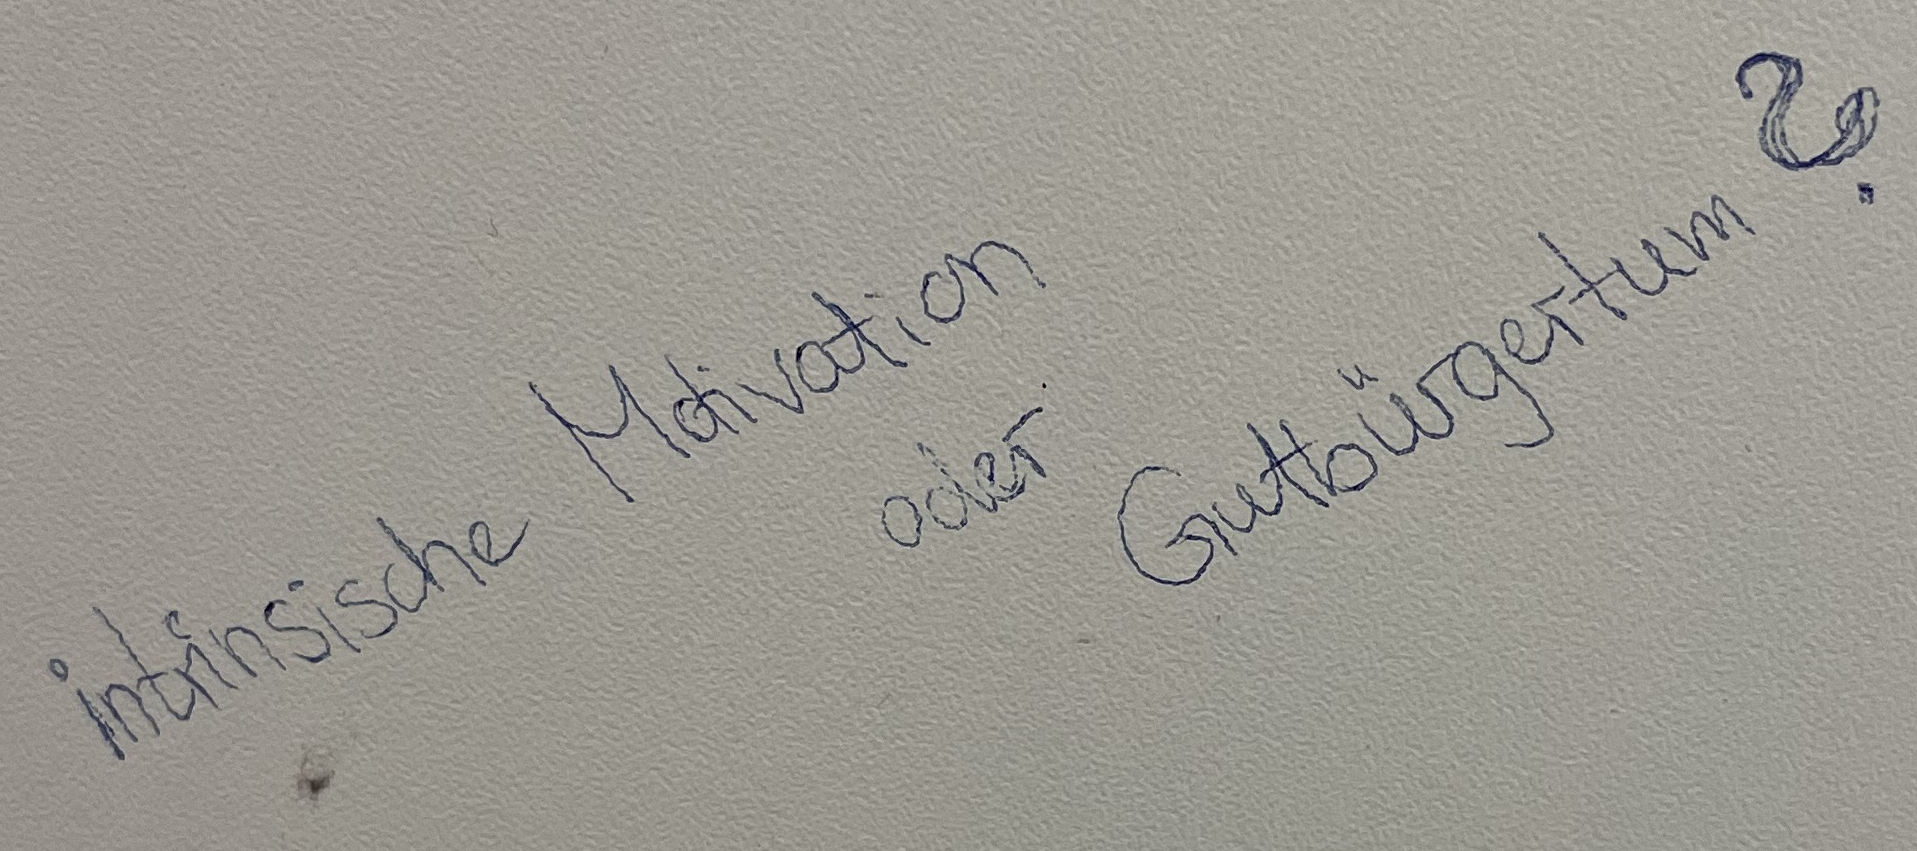 intrinsische Motivation
oder
Gutbürgertum?